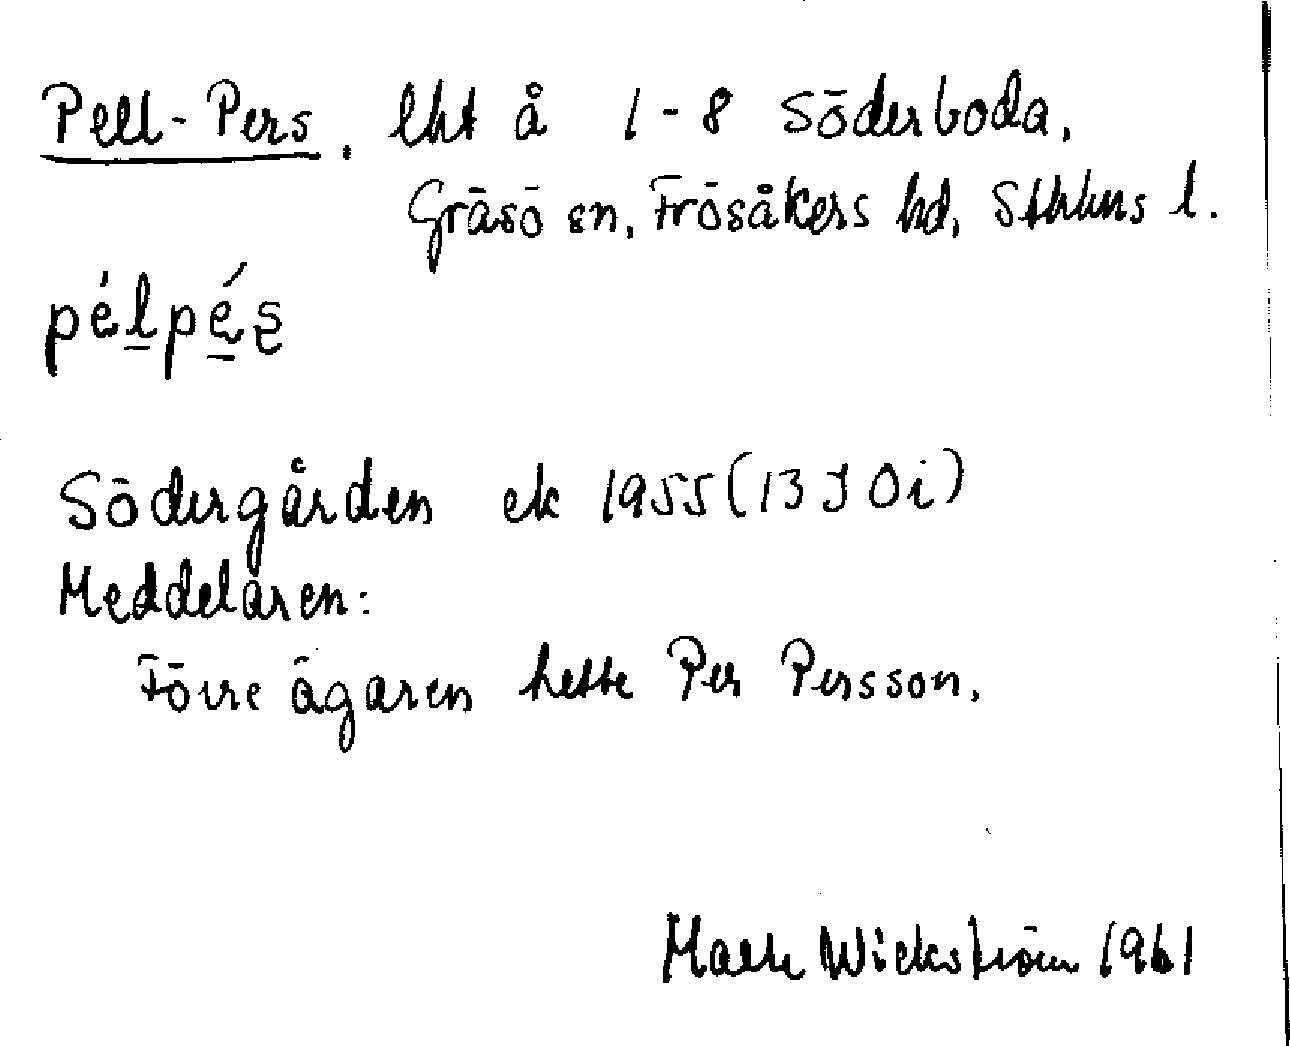 Pell-Pers. lht å 1-8 Söderboda,
Gräsö sn, Frösåkers hd, Sthlms l.
pélpés
Södergården ek 1955 (13 J 0i)
Meddelaren:
Förre ägaren hette Per Persson.
Wickström 1961